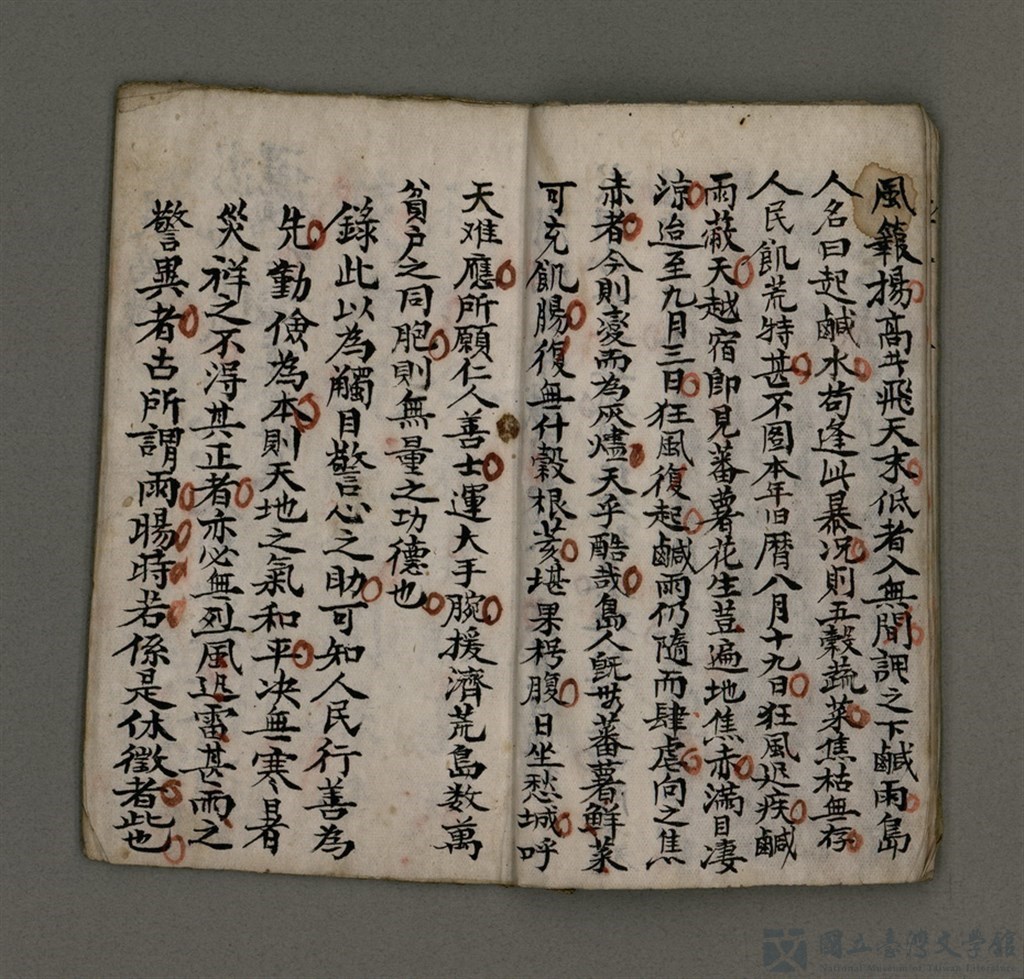 風籟揚高者飛天末低者入無間謂之下鹹雨島
人名曰起鹹水苟逢此暴况則五穀蔬菜焦枯無存
人民飢荒特甚不图本年旧曆八月十九日狂風迅疾鹹
雨蔽天越宿即見蕃薯花生荳遍地焦赤滿目凄
涼迨至九月三日狂風復起鹹雨仍隨而肆虐向之焦
赤者今則變而為灰燼天乎酷哉島人旣無蕃薯鮮菜
可充飢腸復無什穀根荄堪果枵腹日坐愁城呼
天难應所願仁人善士運大手腕援濟荒島数萬
貧户之同胞則無量之功德也
錄此以為觸目警心之助可知人民行善為
先勤儉為本則天地之氣和平决無寒暑
災祥之不淂其正者亦必無烈風迅雷甚雨之
警異者古所謂雨暘時若係是休徵者此也
國立臺灣文学館